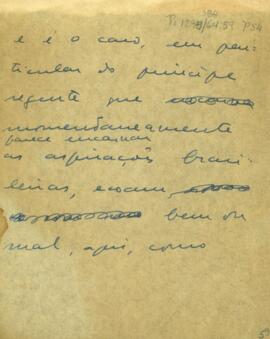 e é o caso, em par-
ticular do príncipe
regente que
momentaneamente
parece encarnar
as aspirações brasi-
leiras, ecoam,
bem ou
mal, aqui, como